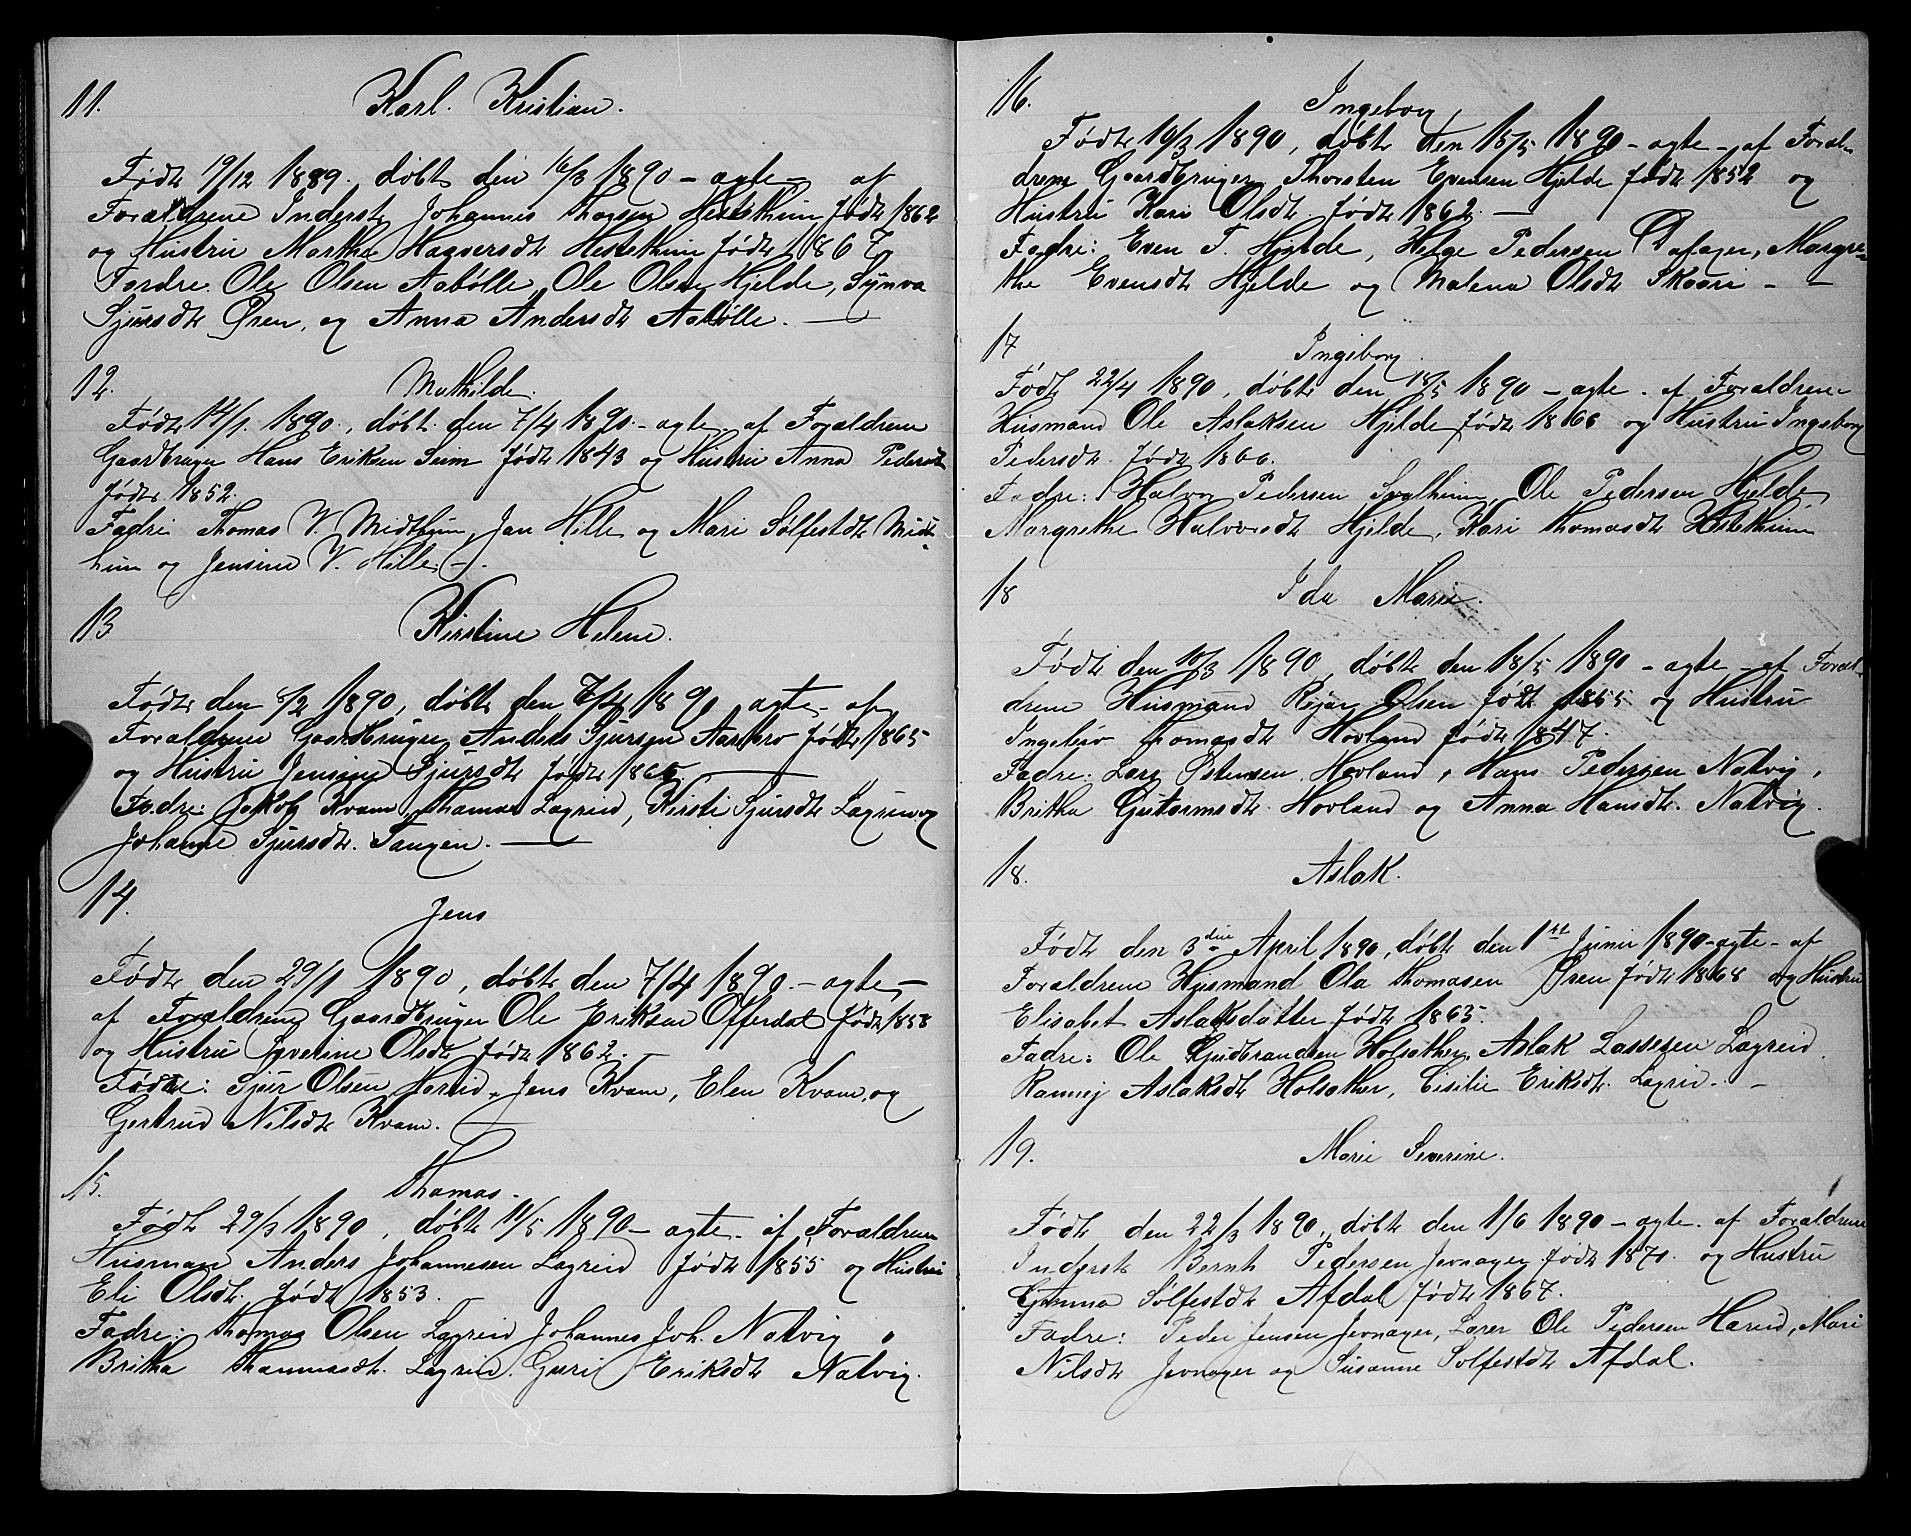 11.
Karl. Kristian.
Født 19/12 1889. døbt den 16/3 1890 – ægte – af
Forældrene Inderst Johannis Thosen Hestethun født 1862
og Hustru Martha Hagversdt Hestethun født 1867
Fordre Ole Olsen Aabølle, Ole Olsen Hjelde, Synva
Sjursdt Øren, og Anna Andersdt Aabølle. —
12.
Mathilde.
Født 14/1. 1890., døbt. den 7/4 1890. – ægte. af Forældrene
Gaardbruger Hans Eriksen Sum født 1843 og Hustru Anna Pedersdt
født 1852.
Fadre Thomas V. Midthun, Jan Hille og Mari Solfestdt Midt-
hun og Jensine V. Hille –.
13
Kirstine Helene.
Født den 8/2 1890, døbt den 7/4 1890 ægte – af
Forældrene Gaardbruger Anders Sjursen Aarebro født 1865
og Hustru Jensine Sjursdt født 1865. —
Fadre: Jakob Kvam, Thomas Lagreid, Kirsti Sjursdt Lagreid og
Johanne Sjursdt. Tangen. —
14.
Jens
Født den 29/1 1890, døbt den 7/4 1890. – ægte, –
af Forældrene Gaardbruger Ole Eriksen Offerdal født 1858
og Hustru Syverine Olsdt født 1862. —
Fødre: Sjur Olsen Hæreid, Jens Kvam, Elen Kvam, og
Gertrud Nilsdt Kvam. —
15.
Thomas.
Født 29/3 1890, døbt 11/5 1890 – ægte. af Forældrene
Husman Anders Johannesen Lagreid født 1855 og Hustru
Eli Olsdt. født 1853.
Fadre: Thomas Olsen Lagreid Johannes Joh. Natvig,
Britha Thommasdt. Lagreid. Guri Eriksdt Natvig.
16.
Ingeborg
Født 19/3 1890, døbt den 18/5 1890 – ægte – af Foræl-
drene Gaardbruger Thorsten Evensen Hjelde født 1852 og
Hustru Kari Olsdt født 1862. —
Fadre: Even T. Hjelde, Helge Pedersen Ofager, Margre-
the Evensdt Hjelde og Malena Olsdt Skaari – –
17
Ingeborg.
Født 22/4 1890, døbt den 18/5 1890 – ægte. af Forældrene
Husmand Ole Aslaksen Hjelde født 1866 og Hustru Ingeborg
Pedersdt. født 1866.
Fadre: Halvor Pedersen Svalheim, Ole Pedersen Hjelde,
Margrethe Halvorsdt Hjelde, Kari Thomasdt Hestethun
18
Ida Marie.
Født den 16/3 1890, døbt den 18/5 1890 – ægte – af Foræl-
drene Husmand Rejar Olsen født 1855 og Hustru
Ingebor Thomasdt Hovland født 1847.
Fadre: Lars Østensen Hovland, Hans Pedersen Natvig,
Britha Guttormsdt. Hovland og Anna Hansdt. Natvig.
18.
Aslak.
Født den 3die April 1890, døbt den 1ste Juni 1890 – ægte – af
Forældrene Husmand Ola Thomasen Øren født 1868 og Hustru
Elisabet Aslaksdatter født 1863.
Fadre: Ole Gudbrandsen Holsæther, Aslak Lassesen Lagreid.
Rannej Aslaksdt Holsæther, Cisilie Eriksdt. Lagreid. –
19.
Marie Severine.
Født den 22/3 1890, døbt den 1/6 1890 – ægte. af Forældrene
Inderst Bernt Pedersen Jevnager født 1870. og Hustru
Gunna Solfestdt Afdal født 1867.
Fadre: Peder Jensen Jevnager, Lærer Ole Pedersen Hæreid, Mari
Nilsdt Jevnager og Susanne Solfestdt Afdal.